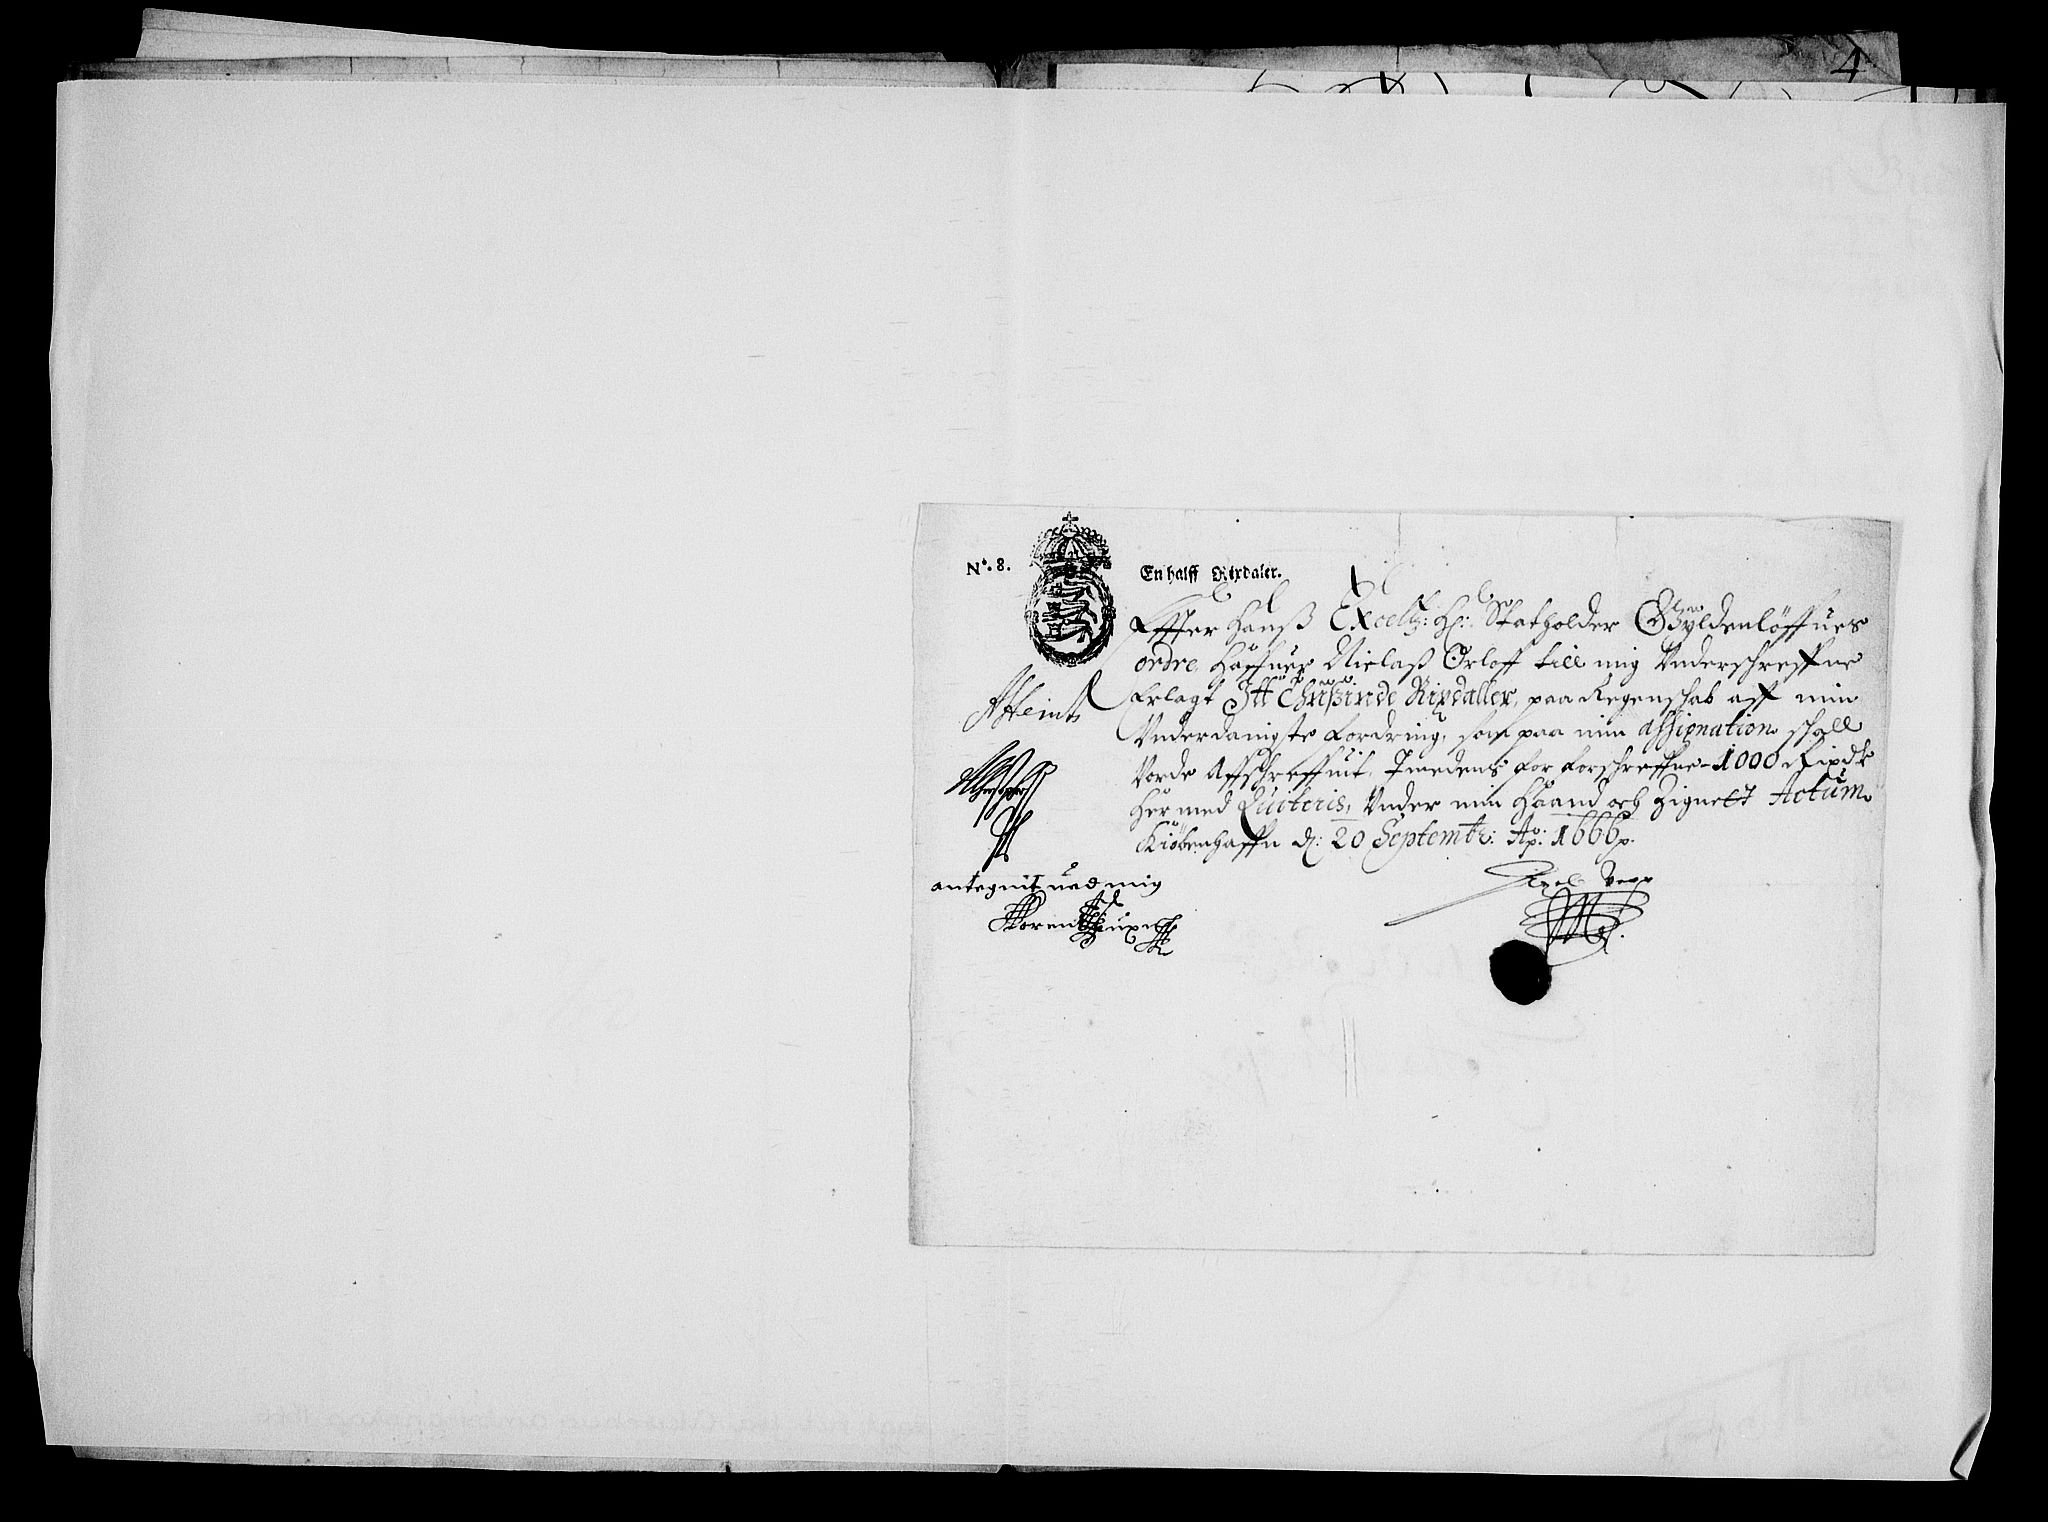 4
N°. 8.
En halff Rixdaler.
Effter Hanß Excell: H: Statholder Gÿldenlöffues
ordre, Haffuer Nielaß Orloff till mig Vnderschreffne
Erlagt Itt Thußinde Rixdaller, paa Regenschab aff min
Vnderdanigste fordring, som paa min assignation schall
Vorde Affschreffuit, Imedens for forschreffne 1000 Rixdr
Her med Quiteris, Vnder min Haand och Zignett Actum
Kiøbenhaffn d: 20 Septembr: Ao: 1666
antegnit ued mig
Axel